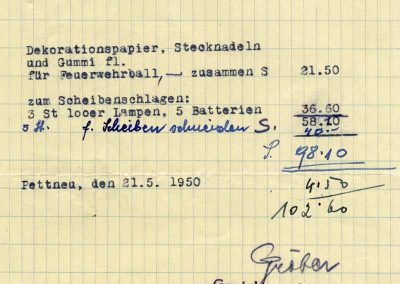 Dekorationspapier, Stecknadeln
und Gummi fl.
für Feuerwehrball,— zusammen S 21.50
zum Scheibenschlagen:
3 St looer Lampen, 5 Batterien 36.60
58.10
f. Scheiben schneiden S. 40.-
S. 98.10
4.50
Pettneu, den 21.5. 1950
102.60
Gröber